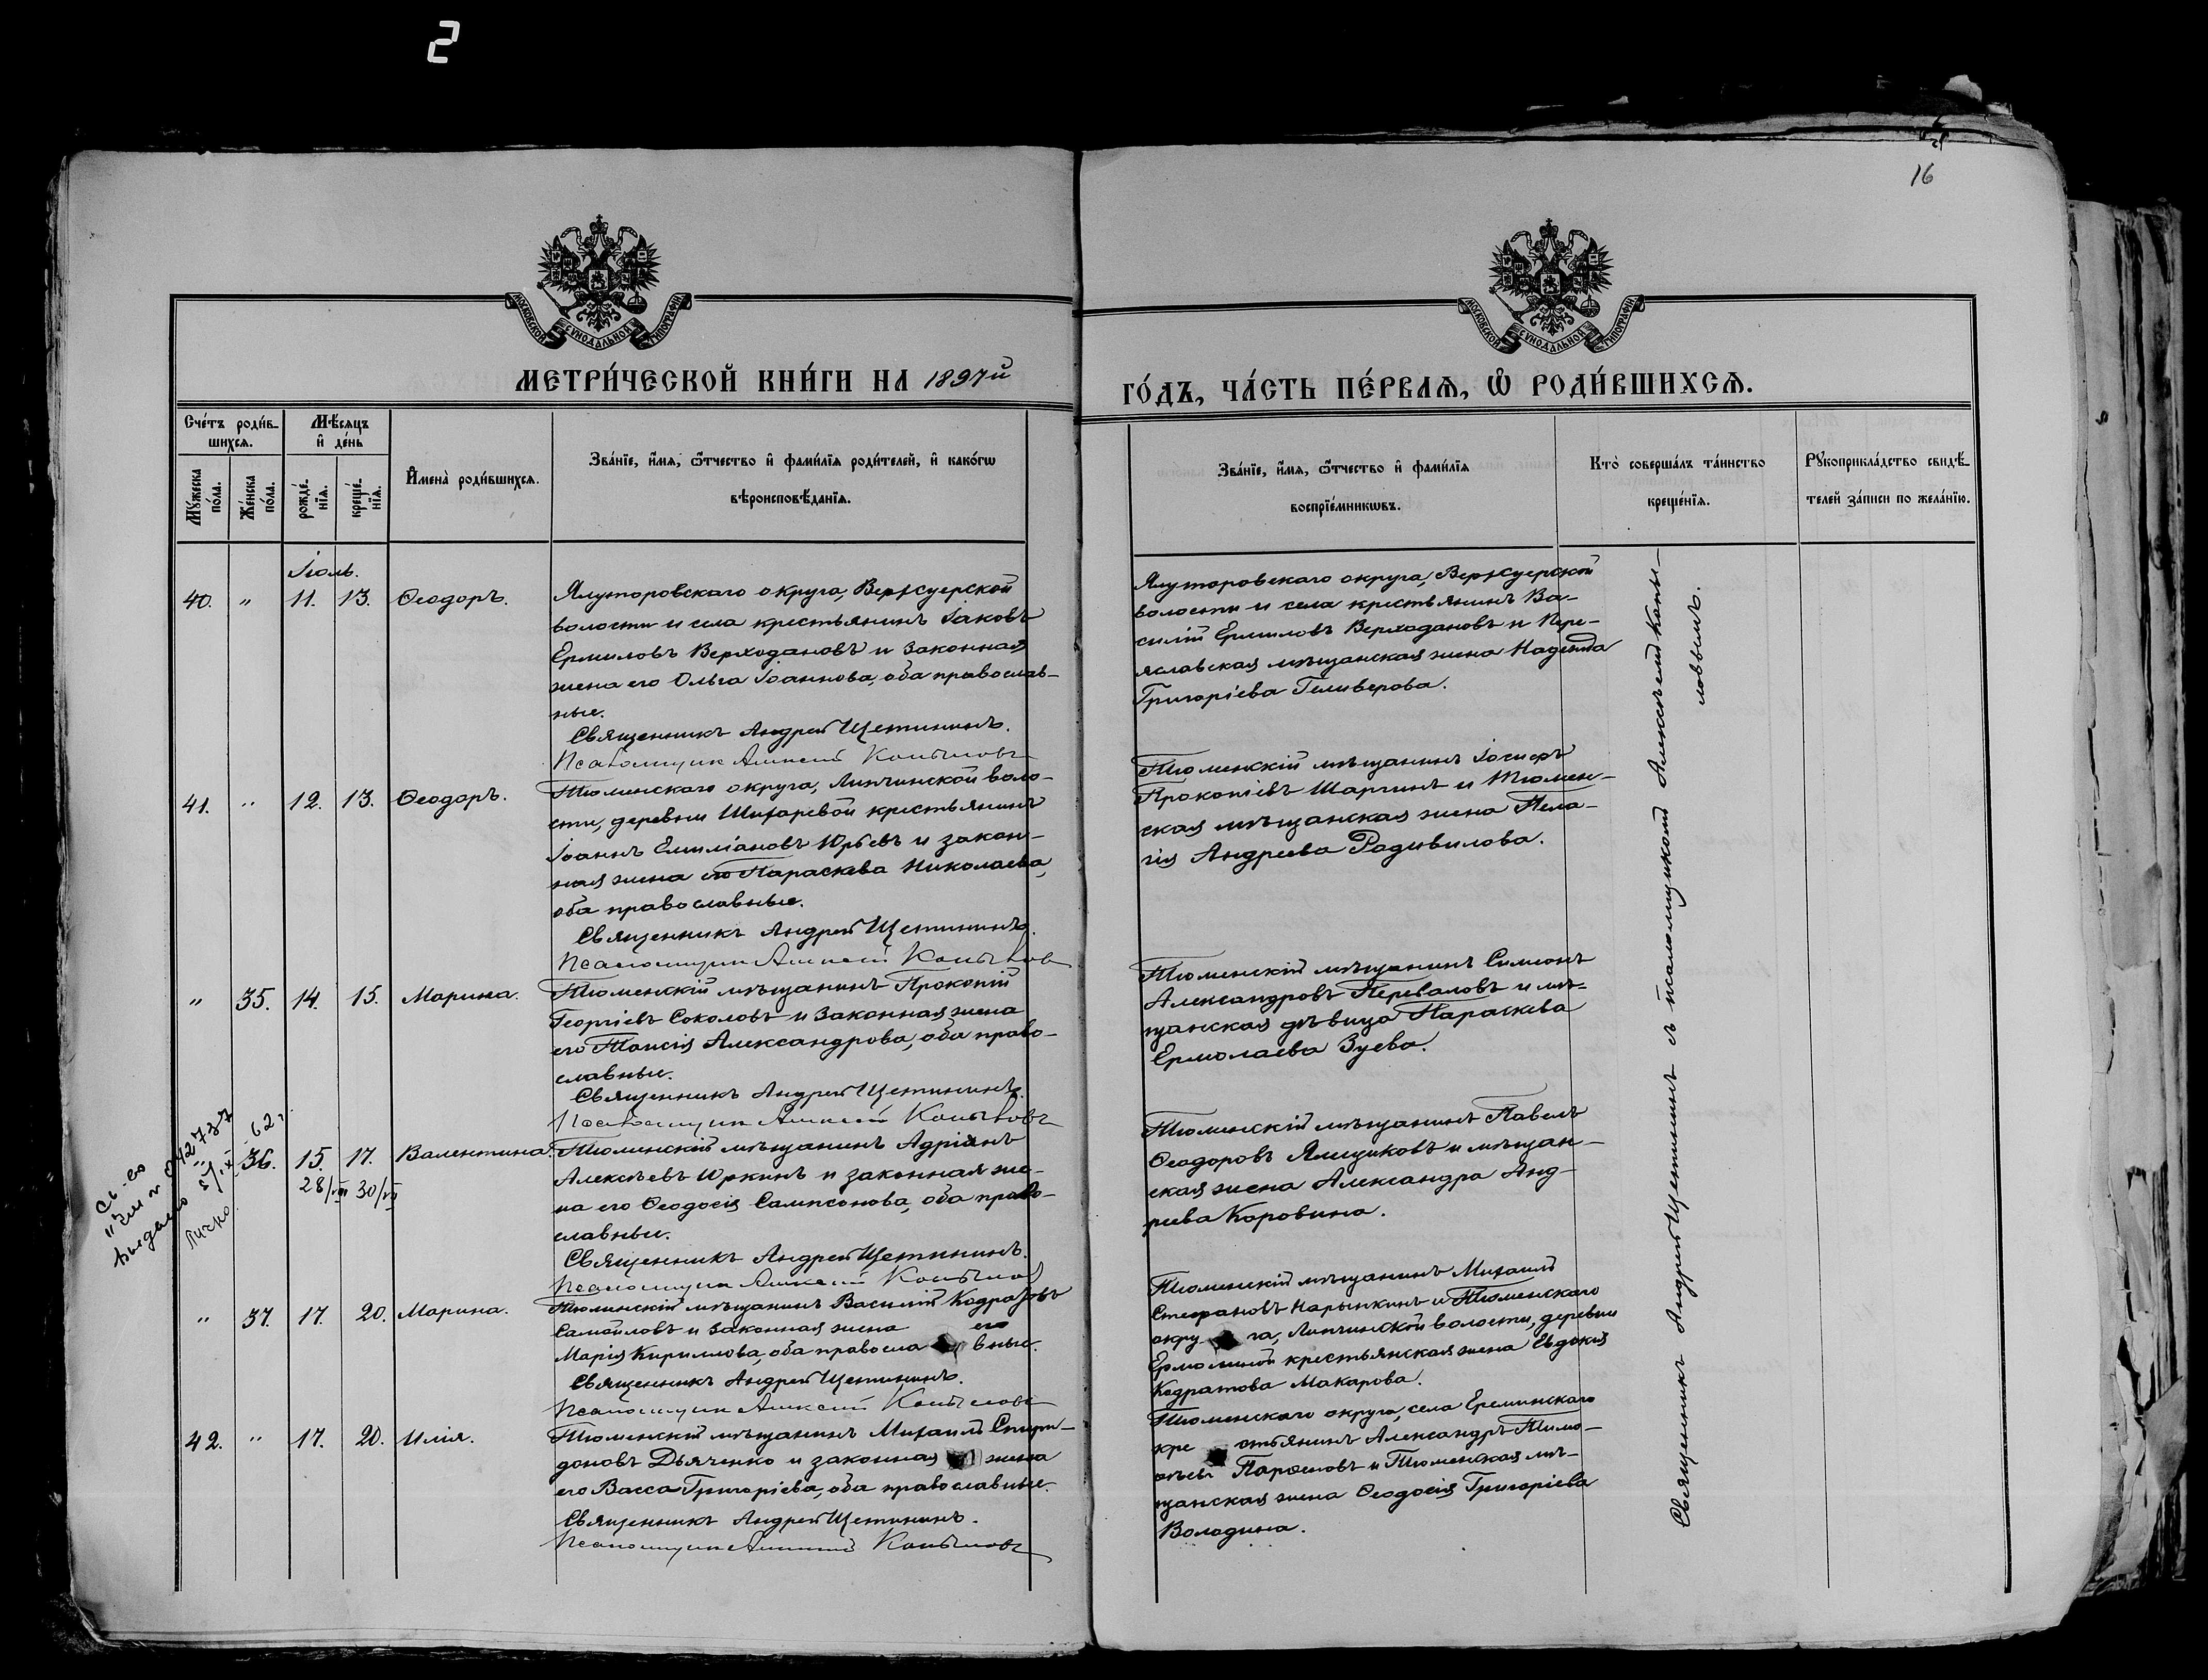 2
16
МОСКОВСКОЙ СѴНОДАЛЬНОЙ ТИПОГРАФІИ
МОСКОВСКОЙ СѴНОДАЛЬНОЙ ТИПОГРАФІИ
МЕТРИ́ЧЕСКОЙ КНИ́ГИ НА 1897й
ГО́ДЪ, ЧА́СТЬ ПЕ́РВАѦ, Ѡ҆ РОДИ́ВШИХСѦ.
Сче́тъ роди́в-
шихсѧ.
Мѣ́сѧцъ
и҆ де́нь
Мꙋ́жеска
по́ла.
Же́нска
по́ла.
рожде́-
нїѧ.
креще́-
нїѧ.
И҆мена̀ роди́вшихсѧ.
Зва́нїе, и҆́мѧ, ѻ҆́тчество и҆ фами́лїѧ роди́телей, и҆ како́гѡ
вѣроисповѣ́данїѧ.
Зва́нїе, и҆́мѧ, ѻ҆́тчество и҆ фами́лїѧ
воспрїе́мникѡвъ.
Кто̀ соверша́лъ та́инство
креще́нїѧ.
Рꙋкоприкла́дство свидѣ́-
телей за́писи по жела́нїю.
Іюль.
40. " 11. 13. Ѳеодоръ.
Ялуторовскаго округа, Верхсуерской
волости и села крестьянинъ Іаковъ
Ермиловъ Верходановъ и законная
жена его Ольга Іоаннова, оба православ-
ные.
Священникъ Андрей Щетининъ.
Псаломщикъ Алексѣй Копыловъ
Ялуторовскаго округа, Верхсуерской
волости и села крестьянинъ Ва-
силій Ермиловъ Верходановъ и Пере-
яславская мѣщанская жена Надежда
Григоріева Геливерова.
41. " 12. 13. Ѳеодоръ.
Тюменскаго округа, Липчинской воло-
сти, деревни Шихаревой крестьянинъ
Іоаннъ Емиліановъ Юрьевъ и закон-
ная жена его Параскева Николаева,
оба православные.
Священникъ Андрей Щетининъ.
Псаломщикъ Алексѣй Копыловъ
Тюменскій мѣщанинъ Іосифъ
Прокопіевъ Шаргинъ и Тюмен-
ская мѣщанская жена Пела-
гія Андреева Радивилова.
" 35. 14. 15. Марина.
Тюменскій мѣщанинъ Прокопій
Георгіевъ Соколовъ и законная жена
его Таисія Александрова, оба право-
славные.
Священникъ Андрей Щетининъ.
Псаломщикъ Алексѣй Копыловъ
Тюменскій мѣщанинъ Симеонъ
Александровъ Переваловъ и мѣ-
щанская дѣвица Параскева
Ермолаева Зуева.
" 36. 15. 17. Валентина.
28/VII 30/VII
Тюменскій мѣщанинъ Адріанъ
Алексѣевъ Юркинъ и законная же-
на его Ѳеодосія Сампсонова, оба право-
славные.
Священникъ Андрей Щетининъ.
Псаломщикъ Алексѣй Копыловъ
Тюменскій мѣщанинъ Павелъ
Ѳеодоровъ Ямщиковъ и мѣщан-
ская жена Александра Анд-
реева Коровина.
выдано
лично
" 37. 17. 20. Марина.
Тюменскій мѣщанинъ Василій Кодратовъ
Самойловъ и законная жена его
Марія Кириллова, оба православные.
Священникъ Андрей Щетининъ.
Псаломщикъ Алексѣй Копыловъ
Тюменскій мѣщанинъ Михаилъ
Стефановъ Нарыжкинъ и Тюменскаго
округа, Липчинской волости, деревни
Ермолиной крестьянская жена Евдокія
Кодратова Макарова.
42. " 17. 20. Илія.
Тюменскій мѣщанинъ Михаилъ Спири-
доновъ Дьяченко и законная жена
его Васса Григоріева, оба православные.
Священникъ Андрей Щетининъ.
Псаломщикъ Алексѣй Копыловъ
Тюменскаго округа, села Ереминскаго
крестьянинъ Александръ Тимо-
ѳѣевъ Парѳеновъ и Тюменская мѣ-
щанская жена Ѳеодосія Григоріева
Володина.
Священникъ Андрей Щетининъ съ псаломщикомъ Алексѣемъ Копы-
ловымъ.